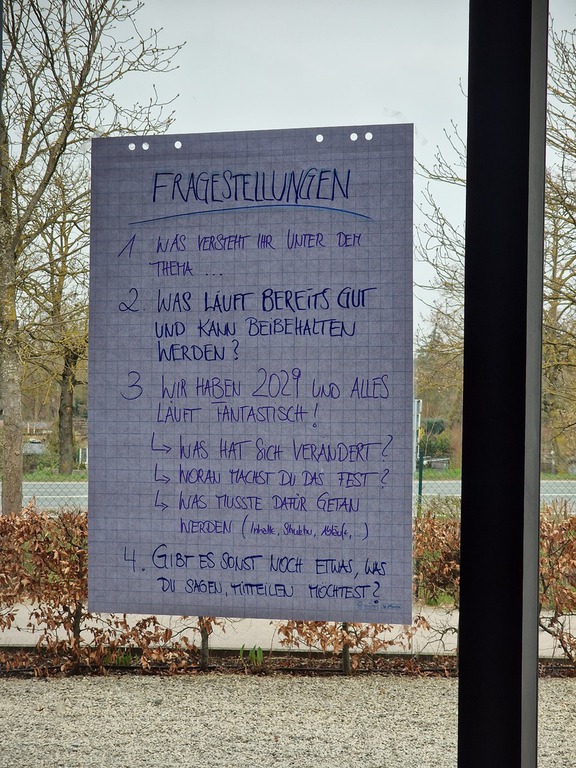 FRAGESTELLUNGEN
1 WAS VERSTEHT IHR UNTER DEM
THEMA ...
2. WAS LÄUFT BEREITS GUT
UND KANN BEIBEHALTEN
WERDEN?
3 WIR HABEN 2029 UND ALLES
LÄUFT FANTASTISCH!
↳ WAS HAT SICH VERÄNDERT?
↳ WORAN MACHST DU DAS FEST?
↳ WAS MUSSTE DAFÜR GETAN
WERDEN (Inhalte, Struktur, Abläufe, ..)
4. GIBT ES SONST NOCH ETWAS, WAS
DU SAGEN, MITTEILEN MÖCHTEST?